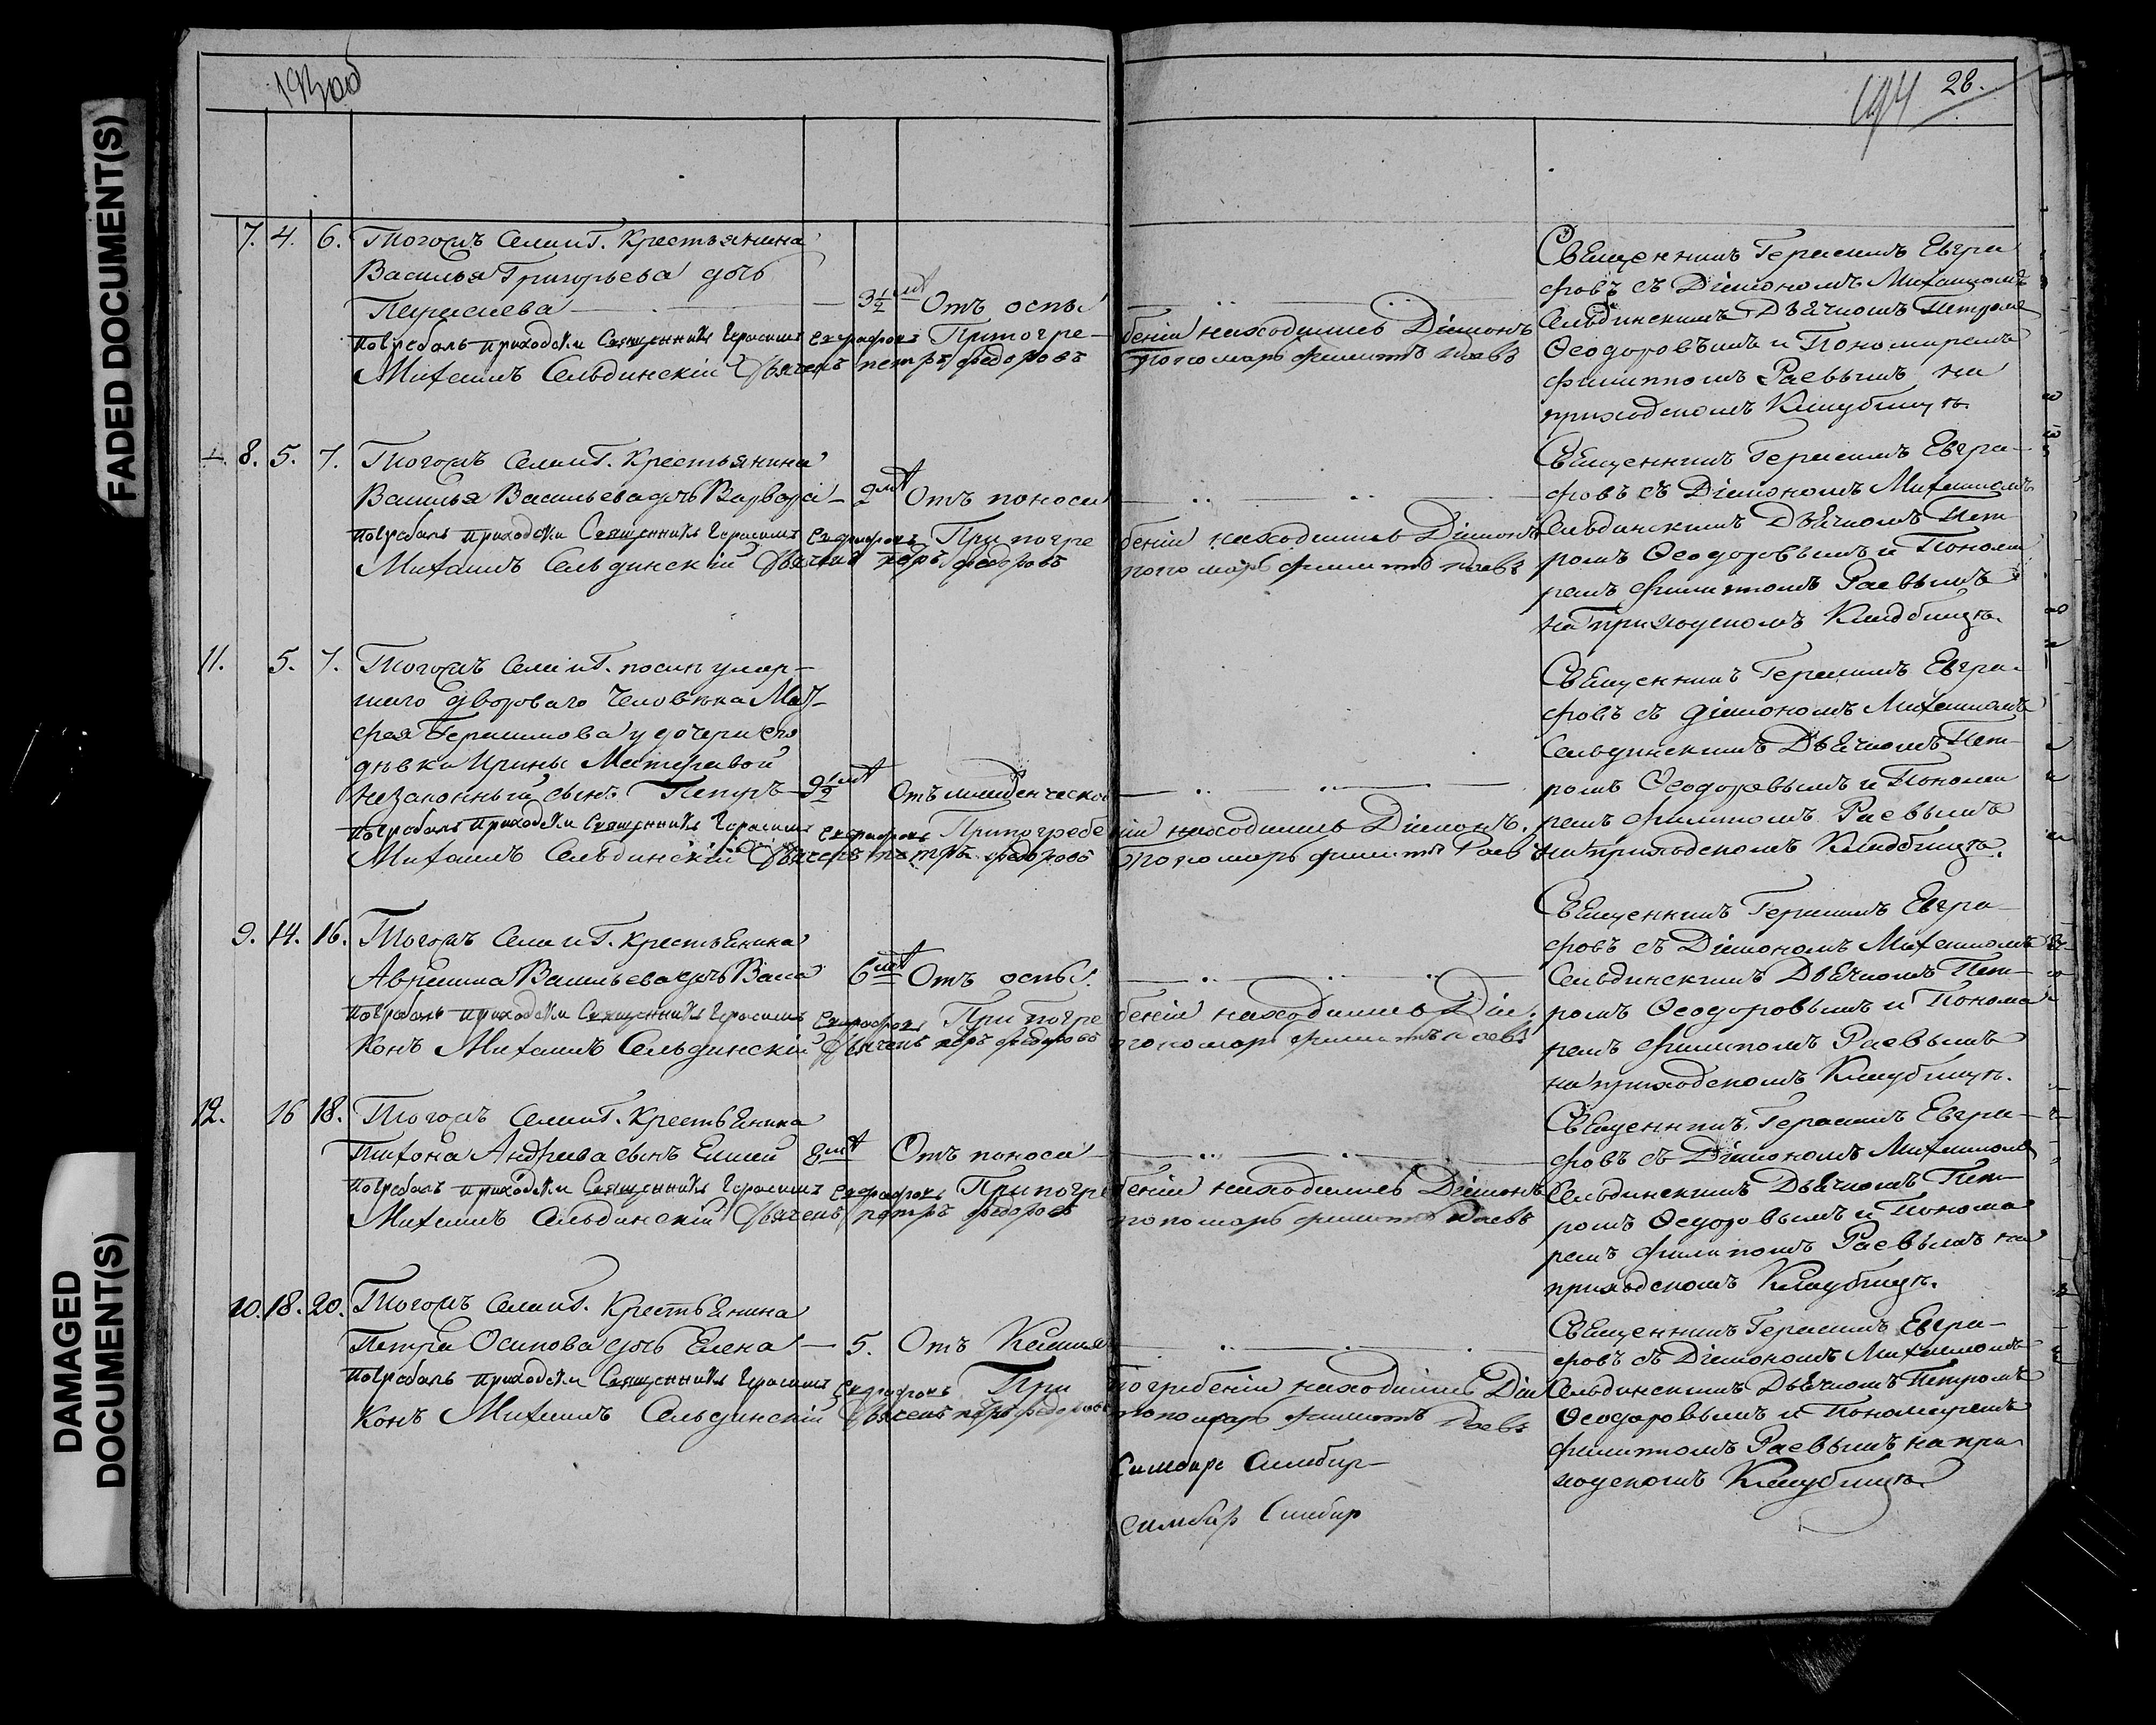 FADED DOCUMENT(S)
DAMAGED
DOCUMENT(S)
193 об
194 28.
7. 4. 6. Тогожъ Села и Г. Крестьянина
Василья Григорьева дочь
Параскева 3½ лѣт Отъ оспы
Погребалъ приходски Священникъ Герасимъ Евграфовъ При погре-
бении находились Діаконъ
Михаилъ Сельдинскій Дьячекъ петръ федоровъ
пономарь филиппъ Раевъ
Священникъ Герасимъ Евгра
фовъ съ Діакономъ Михаиломъ
Сельдинскимъ Дьячкомъ Петромъ
Ѳеодоровымъ и Пономаремъ
филиппомъ Раевымъ на
приходскомъ Кладбищѣ.
8. 5. 7. Тогожъ Села и Г. Крестьянина
Василья Васильева дочь Варвара 2 лѣт Отъ поноса
Погребалъ приходски Священникъ Герасимъ Евграфовъ При погре
бении находились Діаконъ
Михаилъ Сельдинскій Дьячекъ петръ федоровъ
пономарь филиппъ Раевъ
Священникъ Герасимъ Евгра-
фовъ съ Діакономъ Михаиломъ
Сельдинскимъ Дьячкомъ Пет-
ромъ Ѳеодоровымъ и Понома
ремъ филиппомъ Раевымъ
на приходскомъ Кладбищѣ.
11. 5. 7. Тогожъ Села и Г. послѣ умер-
шаго дворового человѣка Мат-
фея Герасимова у дочери его
дѣвки Ирины Матфеевой
незаконный сынъ Петръ ½ лѣт Отъ младенческой
Погребалъ приходски Священникъ Герасимъ Евграфовъ При погребе
нии находились Діаконъ.
Михаилъ Сельдинскій Дьячекъ петръ федоровъ
пономарь филиппъ Раевъ
Священникъ Герасимъ Евгра-
фовъ съ діакономъ Михаиломъ
Сельдинскимъ Дьячкомъ Пет-
ромъ Ѳеодоровымъ и Понома
ремъ филиппомъ Раевымъ
на приходскомъ Кладбищѣ.
9. 14. 16. Тогожъ Села и Г. Крестьянина
Авраама Васильева дочь Васа 6 лѣт Отъ оспы.
Погребалъ приходски Священникъ Герасимъ Евграфовъ При погре
бении находились Діа.
Конъ Михаилъ Сельдинскій Дьячекъ петръ федоровъ
пономарь филиппъ Раевъ
Священникъ Герасимъ Евгра-
фовъ съ Діакономъ Михаиломъ
Сельдинскимъ Дьячкомъ Пет-
ромъ Ѳеодоровымъ и Понома
ремъ филипомъ Раевымъ
на приходскомъ Кладбищѣ.
12. 16 18. Тогожъ Села и Г. Крестьянина
Тихона Андреева сынъ Елисей 8 лѣт Отъ поноса
Погребалъ приходски Священникъ Герасимъ Евграфовъ При погре
бении находились Діаконъ
Михаилъ Сельдинскій Дьячекъ петръ федоровъ
пономарь филиппъ Раевъ
Священникъ Герасимъ Евгра-
фовъ съ Діакономъ Михаиломъ
Сельдинскимъ Дьячкомъ Пет-
ромъ Ѳеодоровымъ и Понома
ремъ филипомъ Раевымъ на
приходскомъ Кладбищѣ.
10. 18. 20. Тогожъ Села и Г. Крестьянина
Петра Осипова дочь Елена 5. Отъ Кашля
Погребалъ приходски Священникъ Герасимъ Евграфовъ При
погребении находились Діа
Конъ Михаилъ Сельдинскій Дьячекъ петръ федоровъ
пономарь филиппъ Раевъ
Священникъ Герасимъ Евгра-
фовъ съ Діакономъ Михаиломъ
Сельдинскимъ Дьячкомъ Петромъ
Ѳеодоровымъ и Пономаремъ
филиппомъ Раевымъ на при
ходскомъ Кладбищѣ
Симбирс Симбир
Симбир Симбир